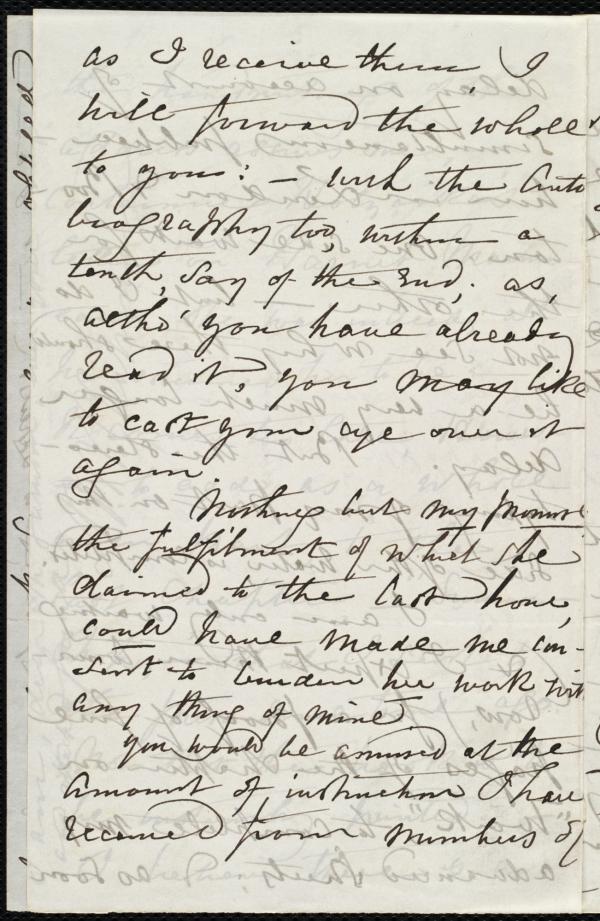 as I receive them, I
will forward the whole
to you: – with the Auto
biography too, within a
tenth, say of the end; as,
altho' you have already
read it, you may like
to cast your eye over it
again.
Nothing but my promise
the fulfilment of which she
claimed to the last hour,
could have made me con-
sent to burden her work with
any thing of mine
You would be amused at the
amount of instruction I have
received from numbers of